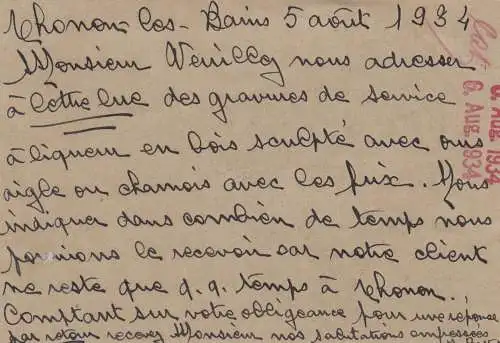 Thonon-les-Bains 5 août 1934
Monsieur Veuillez nous adresser
à lettre lue des gravures de service
à liqueur en bois sculpté avec ours
aigle ou chamois avec les prix. Nous
indiquer dans combien de temps nous
pourrions le recevoir car notre client
ne reste que q.q. temps à Thonon.
Comptant sur votre obligeance pour une réponse
par retour recevez Monsieur nos salutations empressées
6. Aug. 1934
6. Aug. 1934